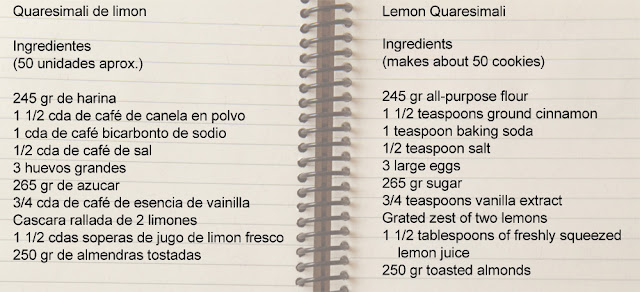 Quaresimali de limon
Ingredientes
(50 unidades aprox.)
245 gr de harina
1 1/2 cda de café de canela en polvo
1 cda de café bicarbonto de sodio
1/2 cda de café de sal
3 huevos grandes
265 gr de azucar
3/4 cda de café de esencia de vainilla
Cascara rallada de 2 limones
1 1/2 cdas soperas de jugo de limon fresco
250 gr de almendras tostadas
Lemon Quaresimali
Ingredients
(makes about 50 cookies)
245 gr all-purpose flour
1 1/2 teaspoons ground cinnamon
1 teaspoon baking soda
1/2 teaspoon salt
3 large eggs
265 gr sugar
3/4 teaspoons vanilla extract
Grated zest of two lemons
1 1/2 tablespoons of freshly squeezed
lemon juice
250 gr toasted almonds